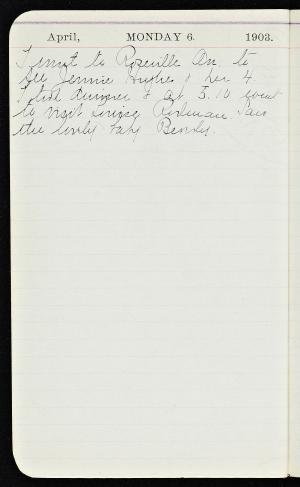 April, MONDAY 6. 1903.
I went to Roseville Av. to
see Jennie Hughes & her 4
I had dinner & at 3.10 went
to visit
the lovely baby